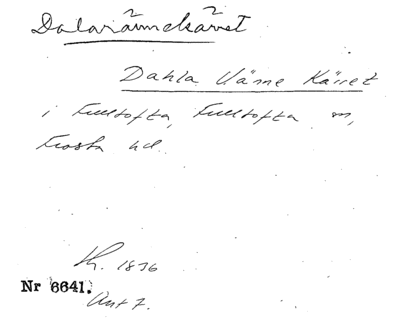 Dalavännekärret
Dahla Wänne Kärret
i Fulltofta, Fulltofta sn,
Frosta hd.
Lh. 1836
Nr 6641.
Akt 7.